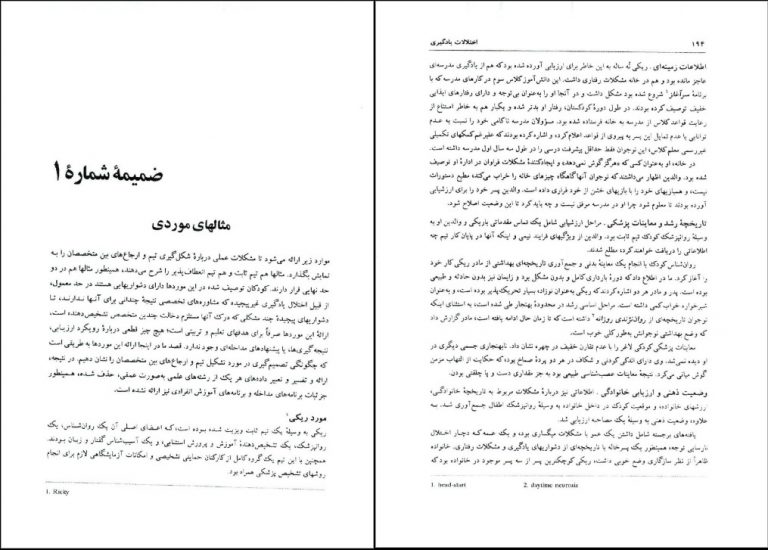 ضمیمهٔ شمارهٔ ۱
مثالهای موردی
موارد زیر ارائه می‌شود تا مشکلات عملی دربارهٔ شکل‌گیری تیم و ارجاع‌های بین متخصصان را به
نمایش بگذارد. مثالها هم تیم ثابت و هم تیم انعطاف‌پذیر را شرح می‌دهند، همینطور مثالها هم در دو
حد نهایی قرار دارند. کودکان توصیف شده در این موردها دارای دشواریهایی هستند در حد معمول،
از قبیل اختلال یادگیری غیرپیچیده که مشاوره‌های تخصصی نتیجهٔ چندانی برای آنها ندارند، تا
دشواریهای پیچیدهٔ چند مشکلی که درک آنها مستلزم دخالت چندین متخصص تشخیص‌دهنده، است.
ارائهٔ این موردها صرفاً برای هدفهای تعلیم و تربیتی است؛ هیچ چیز قطعی دربارهٔ رویکرد ارزیابی،
نتیجه‌گیری‌ها، یا پیشنهادهای مداخله‌ای وجود ندارد. قصد ما در اینجا ارائه این موردها به طریقی است
که چگونگی تصمیم‌گیری در مورد تشکیل تیم و ارجاع‌های بین متخصصان را نشان دهیم. در نتیجه،
ارائه و تفسیر و تعبیر داده‌های هر یک از رشته‌های علمی به‌صورت عملی، حذف شده، همینطور
جزئیات برنامه‌های مداخله و برنامه‌های آموزش انفرادی نیز ارائه نشده است.
مورد ریکی۱
ریکی به وسیلهٔ یک تیم ثابت ویزیت شده بوده است، که اعضای اصلی آن یک روان‌شناس، یک
روانپزشک، یک تشخیص‌دهندهٔ آموزش و پرورش استثنایی، و یک آسیب‌شناس گفتار و زبان بودند.
همچنین با این تیم یک گروه کامل از کارکنان حمایتی تشخیصی و امکانات آزمایشگاهی لازم برای انجام
روشهای تشخیص پزشکی همراه بود.
1. Ricity
۱۹۴ اختلالات یادگیری
اطلاعات زمینه‌ای. ریکی نُه ساله به این خاطر برای ارزیابی آورده شده بود که هم از یادگیری مدرسه‌ای
عاجز مانده بود و هم در خانه مشکلات رفتاری داشت. این دانش‌آموز کلاس سوم در کارهای مدرسه که با
برنامهٔ سرآغاز۱ شروع شده بود مشکل داشت و در آنجا او را به‌عنوان بی‌توجه و دارای رفتارهای ایذایی
خفیف توصیف کرده بودند. در طول دورهٔ کودکستان، رفتار او بدتر شده و یکبار هم به خاطر امتناع از
رعایت قواعد کلاس از مدرسه به خانه فرستاده شده بود. مسؤولان مدرسه ناکامی خود را نسبت به عدم
توانایی یا عدم تمایل این پسر به پیروی از قواعد اعلام کرده و اشاره کرده بودند که علیرغم کمکهای تکمیلی
غیررسمی معلم کلاس، این نوجوان فقط حداقل پیشرفت درسی را در طول سه سال اول مدرسه داشته است.
در خانه، او به‌عنوان کسی که «هرگز گوش نمی‌دهد» و ایجادکنندهٔ مشکلات فراوان در ادارهٔ او توصیف
شده بود. والدین اظهار می‌داشتند که نوجوان آنها گاهگاه چیزهای خانه را خراب می‌کند، مطیع دستورات
نیست، و همبازیهای خود را با بازیهای خشن از خود فراری داده است. والدین پسر خود را برای ارزشیابی
آورده بودند تا معلوم شود چرا او در مدرسه موفق نیست و چه باید کرد تا این وضعیت اصلاح شود.
تاریخچهٔ رشد و معاینات پزشکی. مراحل ارزشیابی شامل یک تماس مقدماتی با ریکی و والدین او به
وسیلهٔ روانپزشک کودک تیم ثابت بود. والدین از ویژگیهای فرایند تیمی و اینکه آنها در پایان کار تیم چه
اطلاعاتی را دریافت خواهند کرد؛ مطلع شدند.
روان‌شناس کودک با انجام یک معاینهٔ بدنی و جمع‌آوری تاریخچه‌ای بهداشتی از مادر ریکی کار خود
را آغاز کرد. ما در اطلاع داد که دورهٔ بارداری کامل و بدون مشکل بود و زایمان نیز بدون حادثه و طبیعی
بوده است. پدر و مادر هر دو اشاره کردند که ریکی به‌عنوان نوزاد، بسیار تحریک‌پذیر بوده است، و به‌عنوان
شیرخواره، خراب کمی داشته است. مراحل اساسی رشد در محدودهٔ بهنجار طی شده است، به استثنای اینکه
نوجوان تاریخچه‌ای از روان‌نژندی روزانه۲ داشته است که تا زمان حال ادامه یافته است؛ مادر گزارش داد
که وضع بهداشتی نوجوانش به‌طور کلی خوب است.
معاینات پزشکی کودکی لاغر را با عدم تقارن خفیف در چهره نشان داد. نابهنجاری جسمی دیگری در
او دیده نمی‌شد. وی دارای اندکی کودنی و شکاف در هر دو پردهٔ صماخ بود که حکایت از التهاب مزمن
گوش میانی می‌کرد. نتیجهٔ معاینات عصب‌شناسی طبیعی بود به جز مقداری دست و پا چلفتی بودن.
وضعیت ذهنی و ارزیابی خانوادگی. اطلاعاتی نیز دربارهٔ مشکلات مربوط به تاریخچهٔ خانوادگی،
روشهای خانواده، و موقعیت کودک در داخل خانواده به وسیلهٔ روانپزشک اطفال جمع‌آوری شد. به
علاوه، وضعیت ذهنی به وسیلهٔ یک مصاحبه ارزیابی شد.
یافته‌های برجسته شامل داشتن یک عمو با مشکلات میگساری بوده و یک عمه که دچار اختلال
نارسایی توجه، همینطور یک پسرخاله با تاریخچه‌ای از دشواریهای یادگیری و مشکلات رفتاری. خانواده
ظاهراً از نظر سازگاری وضع خوبی داشت، ریکی کوچکترین پسر از سه پسر موجود در خانواده بود که
1. head-start 2. daytime neurosis